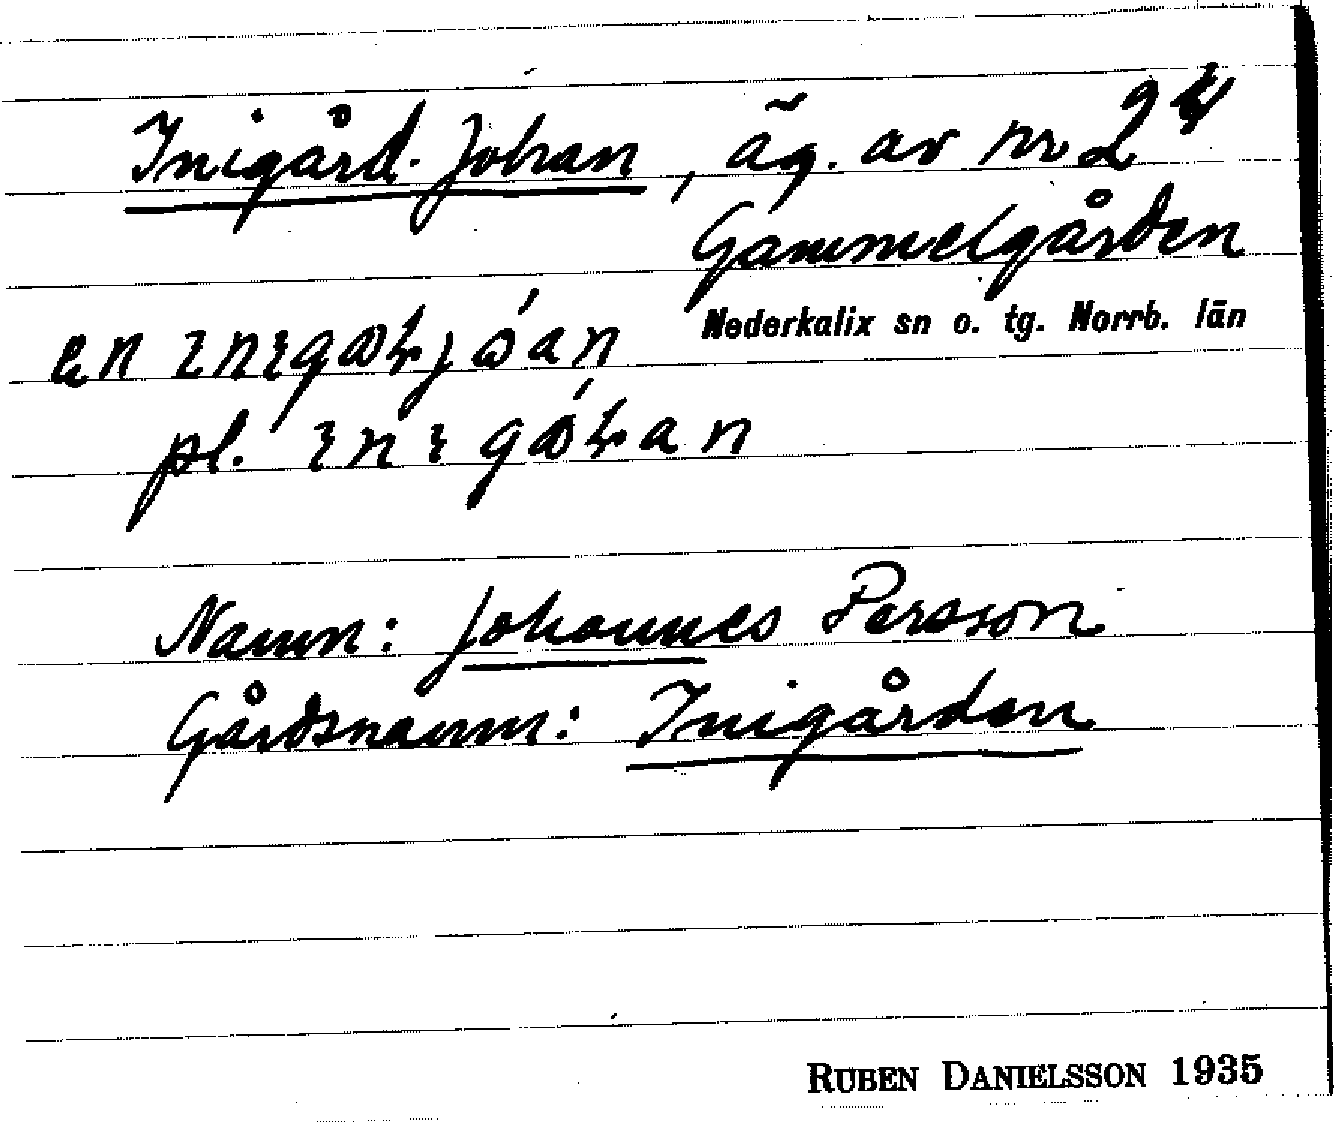 Inigård-Johan, äg. av nr 2⁴
Gammelgården
Nederkalix sn o. tg. Norrb. län
pl.
Namn: Johannes Persson
Gårdsnamn: Inigården
RUBEN DANIELSSON 1935